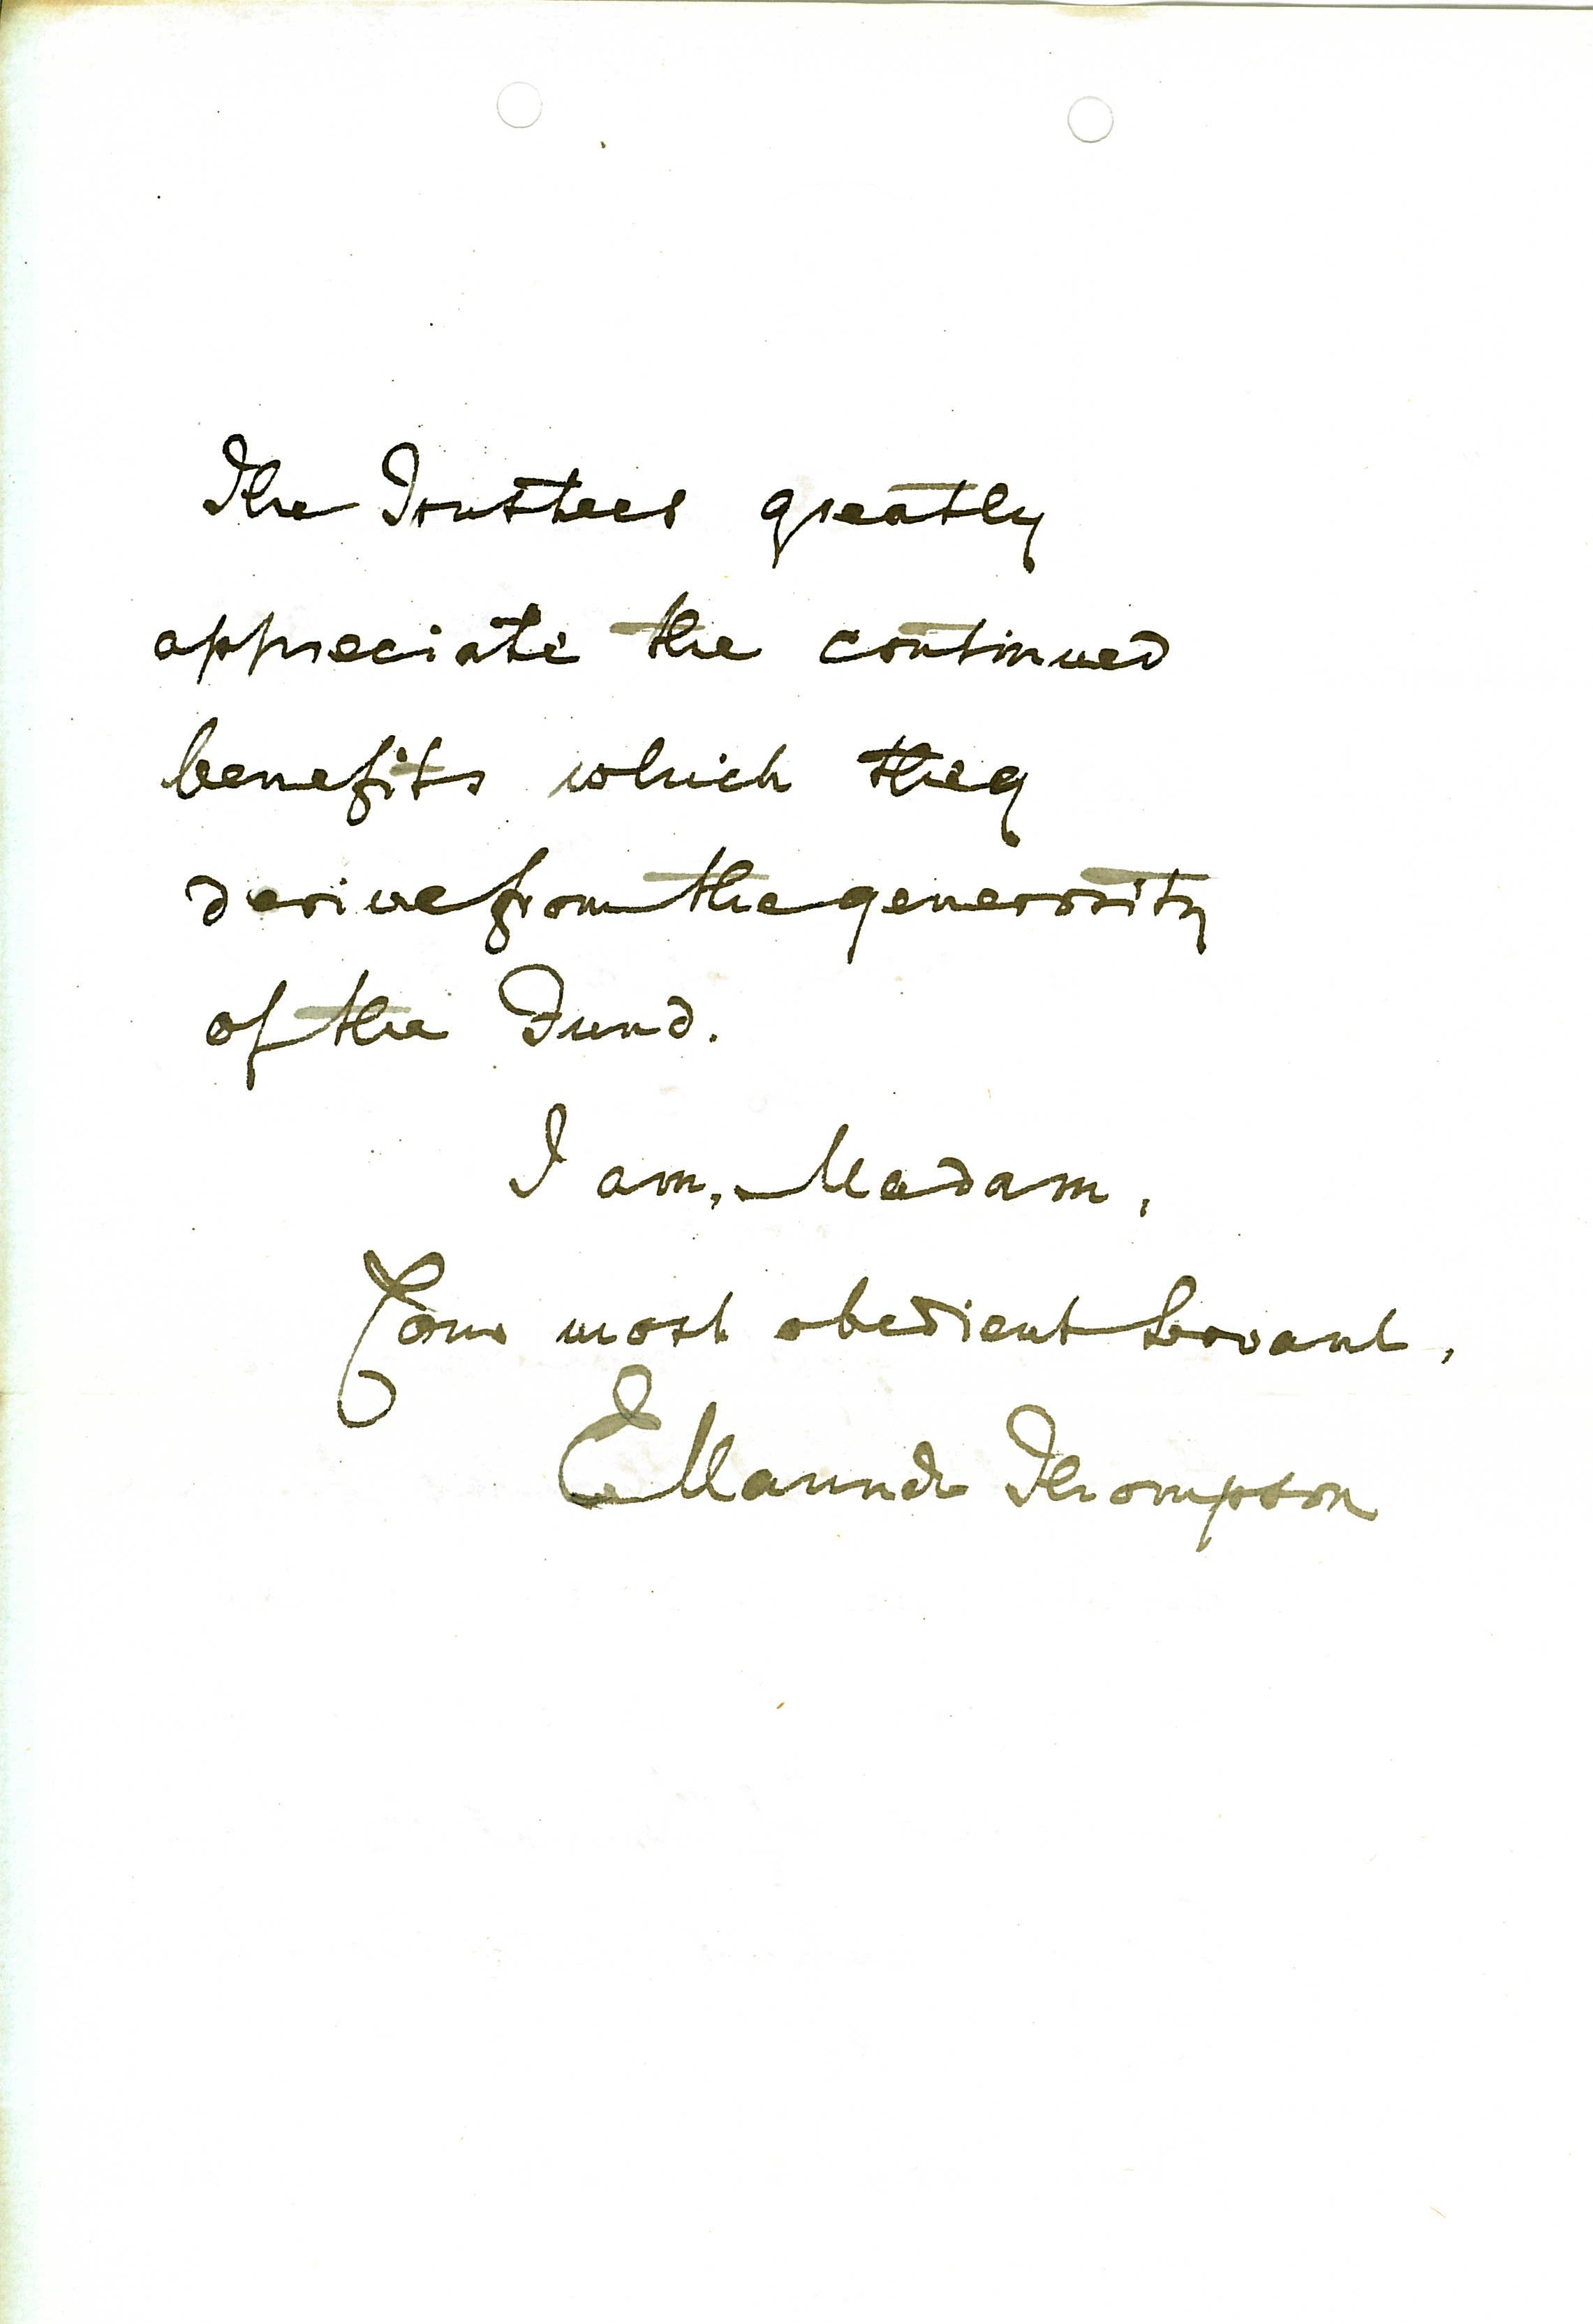 The Trustees greatly
appreciate the continued
benefits which they
derive from the generosity
of the Fund.
I am, Madam,
Your most obedient Servant,
E Maunde Thompson